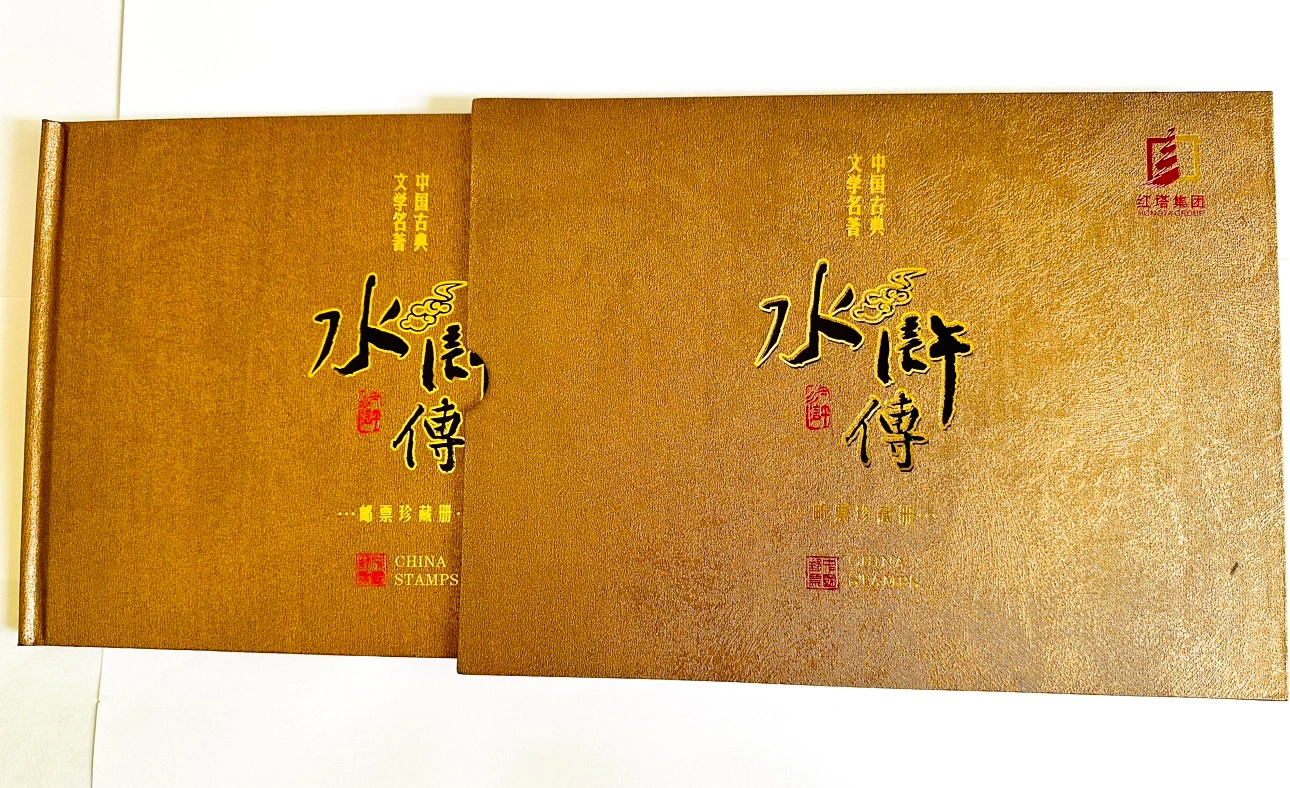 中国古典
文学名著
水滸
傳
邮票珍藏册
CHINA
STAMPS
中国古典
文学名著
水滸
傳
邮票珍藏册
CHINA
STAMPS
红塔集团
HONGTA GROUP